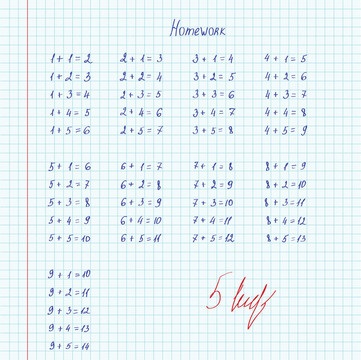 Homework
1 + 1 = 2 2 + 1 = 3 3 + 1 = 4 4 + 1 = 5
1 + 2 = 3 2 + 2 = 4 3 + 2 = 5 4 + 2 = 6
1 + 3 = 4 2 + 3 = 5 3 + 3 = 6 4 + 3 = 7
1 + 4 = 5 2 + 4 = 6 3 + 4 = 7 4 + 4 = 8
1 + 5 = 6 2 + 5 = 7 3 + 5 = 8 4 + 5 = 9
5 + 1 = 6 6 + 1 = 7 7 + 1 = 8 8 + 1 = 9
5 + 2 = 7 6 + 2 = 8 7 + 2 = 9 8 + 2 = 10
5 + 3 = 8 6 + 3 = 9 7 + 3 = 10 8 + 3 = 11
5 + 4 = 9 6 + 4 = 10 7 + 4 = 11 8 + 4 = 12
5 + 5 = 10 6 + 5 = 11 7 + 5 = 12 8 + 5 = 13
9 + 1 = 10
9 + 2 = 11
9 + 3 = 12
9 + 4 = 13
9 + 5 = 14
5